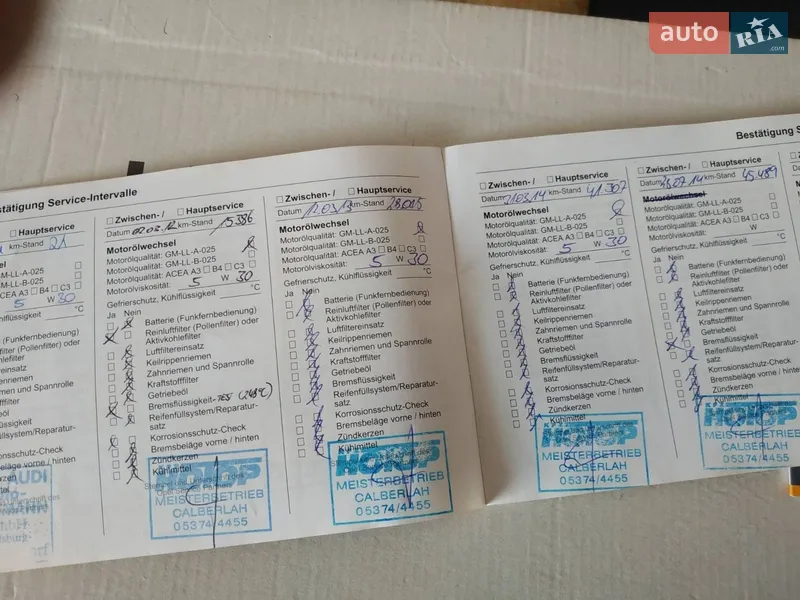 auto RIA
.com
Bestätigung Service-Intervalle
Hauptservice
km-Stand 21
GM-LL-A-025
GM-LL-B-025
ACEA A3 B4 C3
5 W 30
(Funkfernbedienung)
(Pollenfilter) oder
Zahnriemen und Spannrolle
Reifenfüllsystem/Reparatur-
Korrosionsschutz-Check
Bremsbeläge vorne / hinten
AUDI
Zwischen- / Hauptservice
Datum 02.02.12 km-Stand 15.386
Motorölwechsel
Motorölqualität: GM-LL-A-025
Motorölqualität: GM-LL-B-025
Motorölqualität: ACEA A3 B4 C3
Motorölviskosität: 5 W 30
Gefrierschutz, Kühlflüssigkeit °C
Ja Nein
Batterie (Funkfernbedienung)
Reinluftfilter (Pollenfilter) oder
Aktivkohlefilter
Luftfiltereinsatz
Keilrippenriemen
Zahnriemen und Spannrolle
Kraftstofffilter
Getriebeöl
Bremsflüssigkeit
Reifenfüllsystem/Reparatur-
satz
Korrosionsschutz-Check
Bremsbeläge vorne / hinten
Zündkerzen
Kühlmittel
MEISTERBETRIEB
CALBERLAH
05374/4455
Zwischen- / Hauptservice
Datum 12.03.13 km-Stand 28.025
Motorölwechsel
Motorölqualität: GM-LL-A-025
Motorölqualität: GM-LL-B-025
Motorölqualität: ACEA A3 B4 C3
Motorölviskosität: 5 W 30
Gefrierschutz, Kühlflüssigkeit °C
Ja Nein
Batterie (Funkfernbedienung)
Reinluftfilter (Pollenfilter) oder
Aktivkohlefilter
Luftfiltereinsatz
Keilrippenriemen
Zahnriemen und Spannrolle
Kraftstofffilter
Getriebeöl
Bremsflüssigkeit
Reifenfüllsystem/Reparatur-
satz
Korrosionsschutz-Check
Bremsbeläge vorne / hinten
Zündkerzen
Kühlmittel
MEISTERBETRIEB
CALBERLAH
05374/4455
Bestätigung S
Zwischen- / Hauptservice
Datum 21.03.14 km-Stand 41.307
Motorölwechsel
Motorölqualität: GM-LL-A-025
Motorölqualität: GM-LL-B-025
Motorölqualität: ACEA A3 B4 C3
Motorölviskosität: 5 W 30
Gefrierschutz, Kühlflüssigkeit °C
Ja Nein
Batterie (Funkfernbedienung)
Reinluftfilter (Pollenfilter) oder
Aktivkohlefilter
Luftfiltereinsatz
Keilrippenriemen
Zahnriemen und Spannrolle
Kraftstofffilter
Getriebeöl
Bremsflüssigkeit
Reifenfüllsystem/Reparatur-
satz
Korrosionsschutz-Check
Bremsbeläge vorne / hinten
Zündkerzen
Kühlmittel
MEISTERBETRIEB
CALBERLAH
05374/4455
Zwischen- / Hauptservice
Datum 28.07.14 km-Stand 45.489
Motorölwechsel
Motorölqualität: GM-LL-A-025
Motorölqualität: GM-LL-B-025
Motorölqualität: ACEA A3 B4 C3
Motorölviskosität: W
Gefrierschutz, Kühlflüssigkeit °C
Ja Nein
Batterie (Funkfernbedienung)
Reinluftfilter (Pollenfilter) oder
Aktivkohlefilter
Luftfiltereinsatz
Keilrippenriemen
Zahnriemen und Spannrolle
Kraftstofffilter
Getriebeöl
Bremsflüssigkeit
Reifenfüllsystem/Reparatur-
satz
Korrosionsschutz-Check
Bremsbeläge vorne / hinten
Zündkerzen
Kühlmittel
MEISTERBETRIEB
CALBERLAH
05374/4455